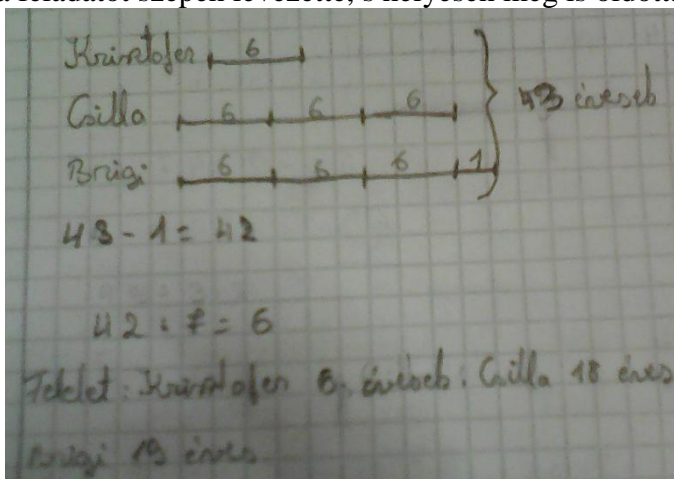 a feladatot szépen levezette, s helyesen meg is oldotta
Krisztofer 6
Csilla 6 6 6
43 évesek
Brigi 6 6 6 1
43 - 1 = 42
42 : 7 = 6
Felelet: Krisztofer 6. évesek. Csilla 18 éves
Brigi 19 éves